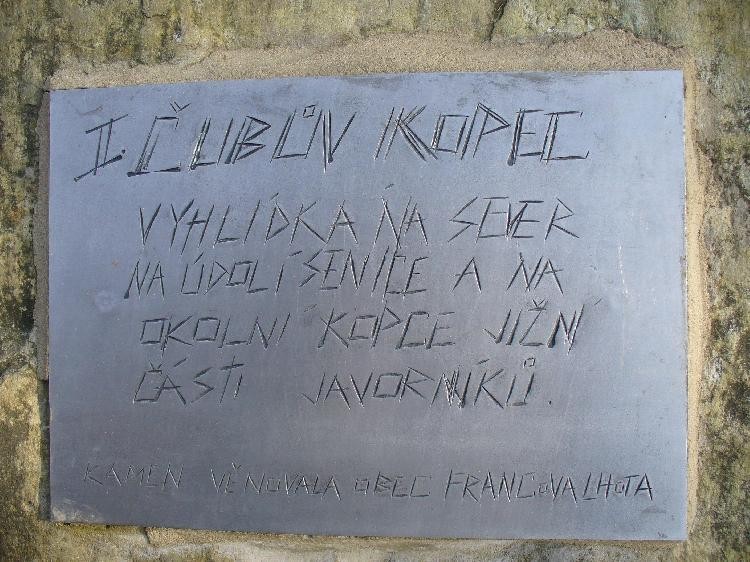 II. ČUBŮV KOPEC
VYHLÍDKA NA SEVER
NA ÚDOLÍ SENICE A NA
OKOLNÍ KOPCE JIŽNÍ
ČÁSTI JAVORNÍKŮ.
KAMEN VĚNOVALA OBEC FRANCOVA LHOTA